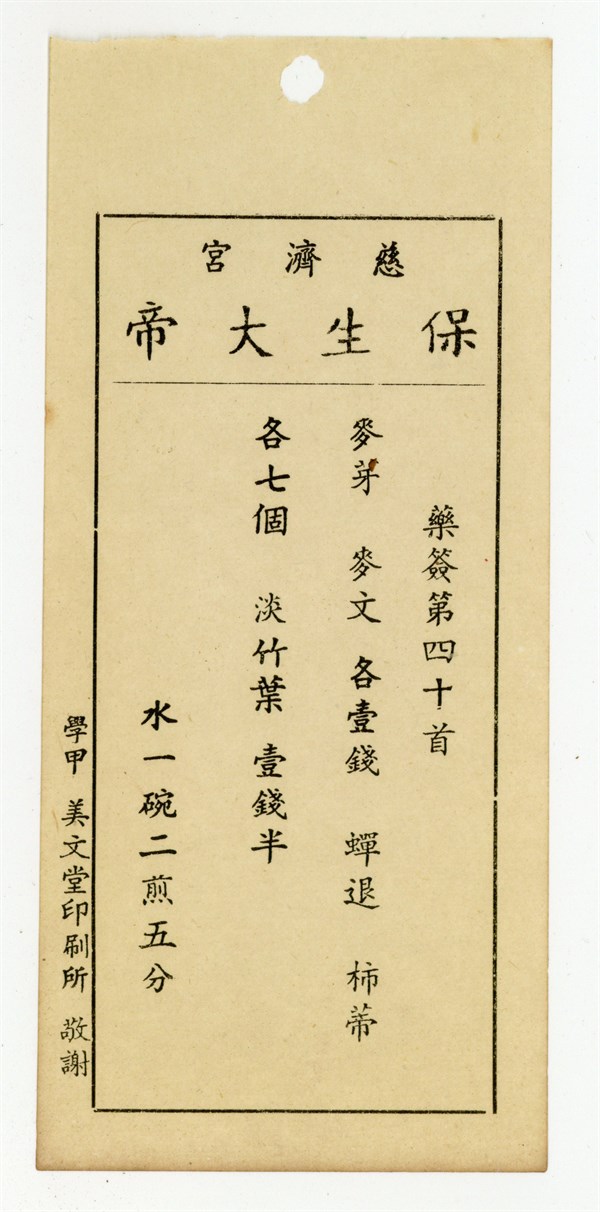 慈濟宮
保生大帝
藥簽第四十首
麥芽 麥文 各壹錢 蟬退 柿蒂
各七個 淡竹葉 壹錢半
水一碗二煎五分
學甲 美文堂印刷所 敬謝